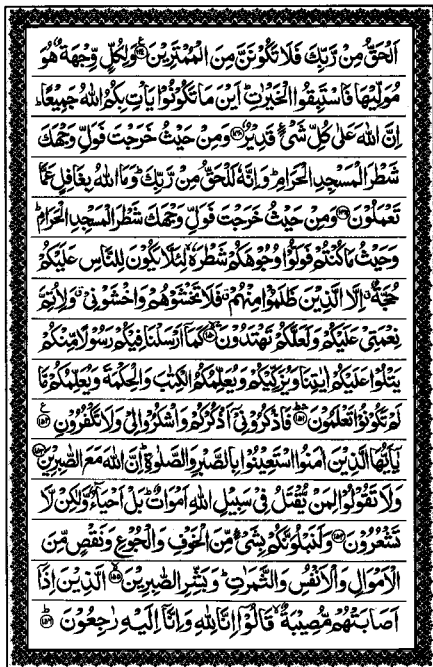 اَلْحَقُّ مِنْ رَّبِّكَ فَلَا تَكُوْنَنَّ مِنَ الْمُمْتَرِيْنَ ﴿۱۴۷﴾ وَلِكُلٍّ وِّجْهَةٌ هُوَ
مُوَلِّيْهَا فَاسْتَبِقُوا الْخَيْرٰتِ ؕ اَيْنَ مَا تَكُوْنُوْا يَاْتِ بِكُمُ اللّٰهُ جَمِيْعًا ؕ
اِنَّ اللّٰهَ عَلٰى كُلِّ شَیْءٍ قَدِيْرٌ ﴿۱۴۸﴾ وَمِنْ حَيْثُ خَرَجْتَ فَوَلِّ وَجْهَكَ
شَطْرَ الْمَسْجِدِ الْحَرَامِ ؕ وَاِنَّهٗ لَلْحَقُّ مِنْ رَّبِّكَ ؕ وَمَا اللّٰهُ بِغَافِلٍ عَمَّا
تَعْمَلُوْنَ ﴿۱۴۹﴾ وَمِنْ حَيْثُ خَرَجْتَ فَوَلِّ وَجْهَكَ شَطْرَ الْمَسْجِدِ الْحَرَامِ ؕ
وَحَيْثُ مَا كُنْتُمْ فَوَلُّوْا وُجُوْهَكُمْ شَطْرَهٗ ۙ لِئَلَّا يَكُوْنَ لِلنَّاسِ عَلَيْكُمْ
حُجَّةٌ ۙ اِلَّا الَّذِيْنَ ظَلَمُوْا مِنْهُمْ ۗ فَلَا تَخْشَوْهُمْ وَاخْشَوْنِیْ ۗ وَلِاُتِمَّ
نِعْمَتِیْ عَلَيْكُمْ وَلَعَلَّكُمْ تَهْتَدُوْنَ ﴿۱۵۰﴾ كَمَاۤ اَرْسَلْنَا فِيْكُمْ رَسُوْلًا مِّنْكُمْ
يَتْلُوْا عَلَيْكُمْ اٰيٰتِنَا وَيُزَكِّيْكُمْ وَيُعَلِّمُكُمُ الْكِتٰبَ وَالْحِكْمَةَ وَيُعَلِّمُكُمْ مَّا
لَمْ تَكُوْنُوْا تَعْلَمُوْنَ ﴿۱۵۱﴾ فَاذْكُرُوْنِیْۤ اَذْكُرْكُمْ وَاشْكُرُوْا لِیْ وَلَا تَكْفُرُوْنِ ﴿۱۵۲﴾
يٰۤاَيُّهَا الَّذِيْنَ اٰمَنُوا اسْتَعِيْنُوْا بِالصَّبْرِ وَالصَّلٰوةِ ؕ اِنَّ اللّٰهَ مَعَ الصّٰبِرِيْنَ ﴿۱۵۳﴾
وَلَا تَقُوْلُوْا لِمَنْ يُّقْتَلُ فِیْ سَبِيْلِ اللّٰهِ اَمْوَاتٌ ؕ بَلْ اَحْيَآءٌ وَّلٰكِنْ لَّا
تَشْعُرُوْنَ ﴿۱۵۴﴾ وَلَنَبْلُوَنَّكُمْ بِشَیْءٍ مِّنَ الْخَوْفِ وَالْجُوْعِ وَنَقْصٍ مِّنَ
الْاَمْوَالِ وَالْاَنْفُسِ وَالثَّمَرٰتِ ؕ وَبَشِّرِ الصّٰبِرِيْنَ ﴿۱۵۵﴾ الَّذِيْنَ اِذَاۤ
اَصَابَتْهُمْ مُّصِيْبَةٌ ۙ قَالُوْۤا اِنَّا لِلّٰهِ وَاِنَّاۤ اِلَيْهِ رٰجِعُوْنَ ﴿۱۵۶﴾